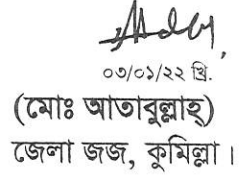 ০৩/০১/২২ খ্রি.
(মোঃ আতাবুল্লাহ্)
জেলা জজ, কুমিল্লা।